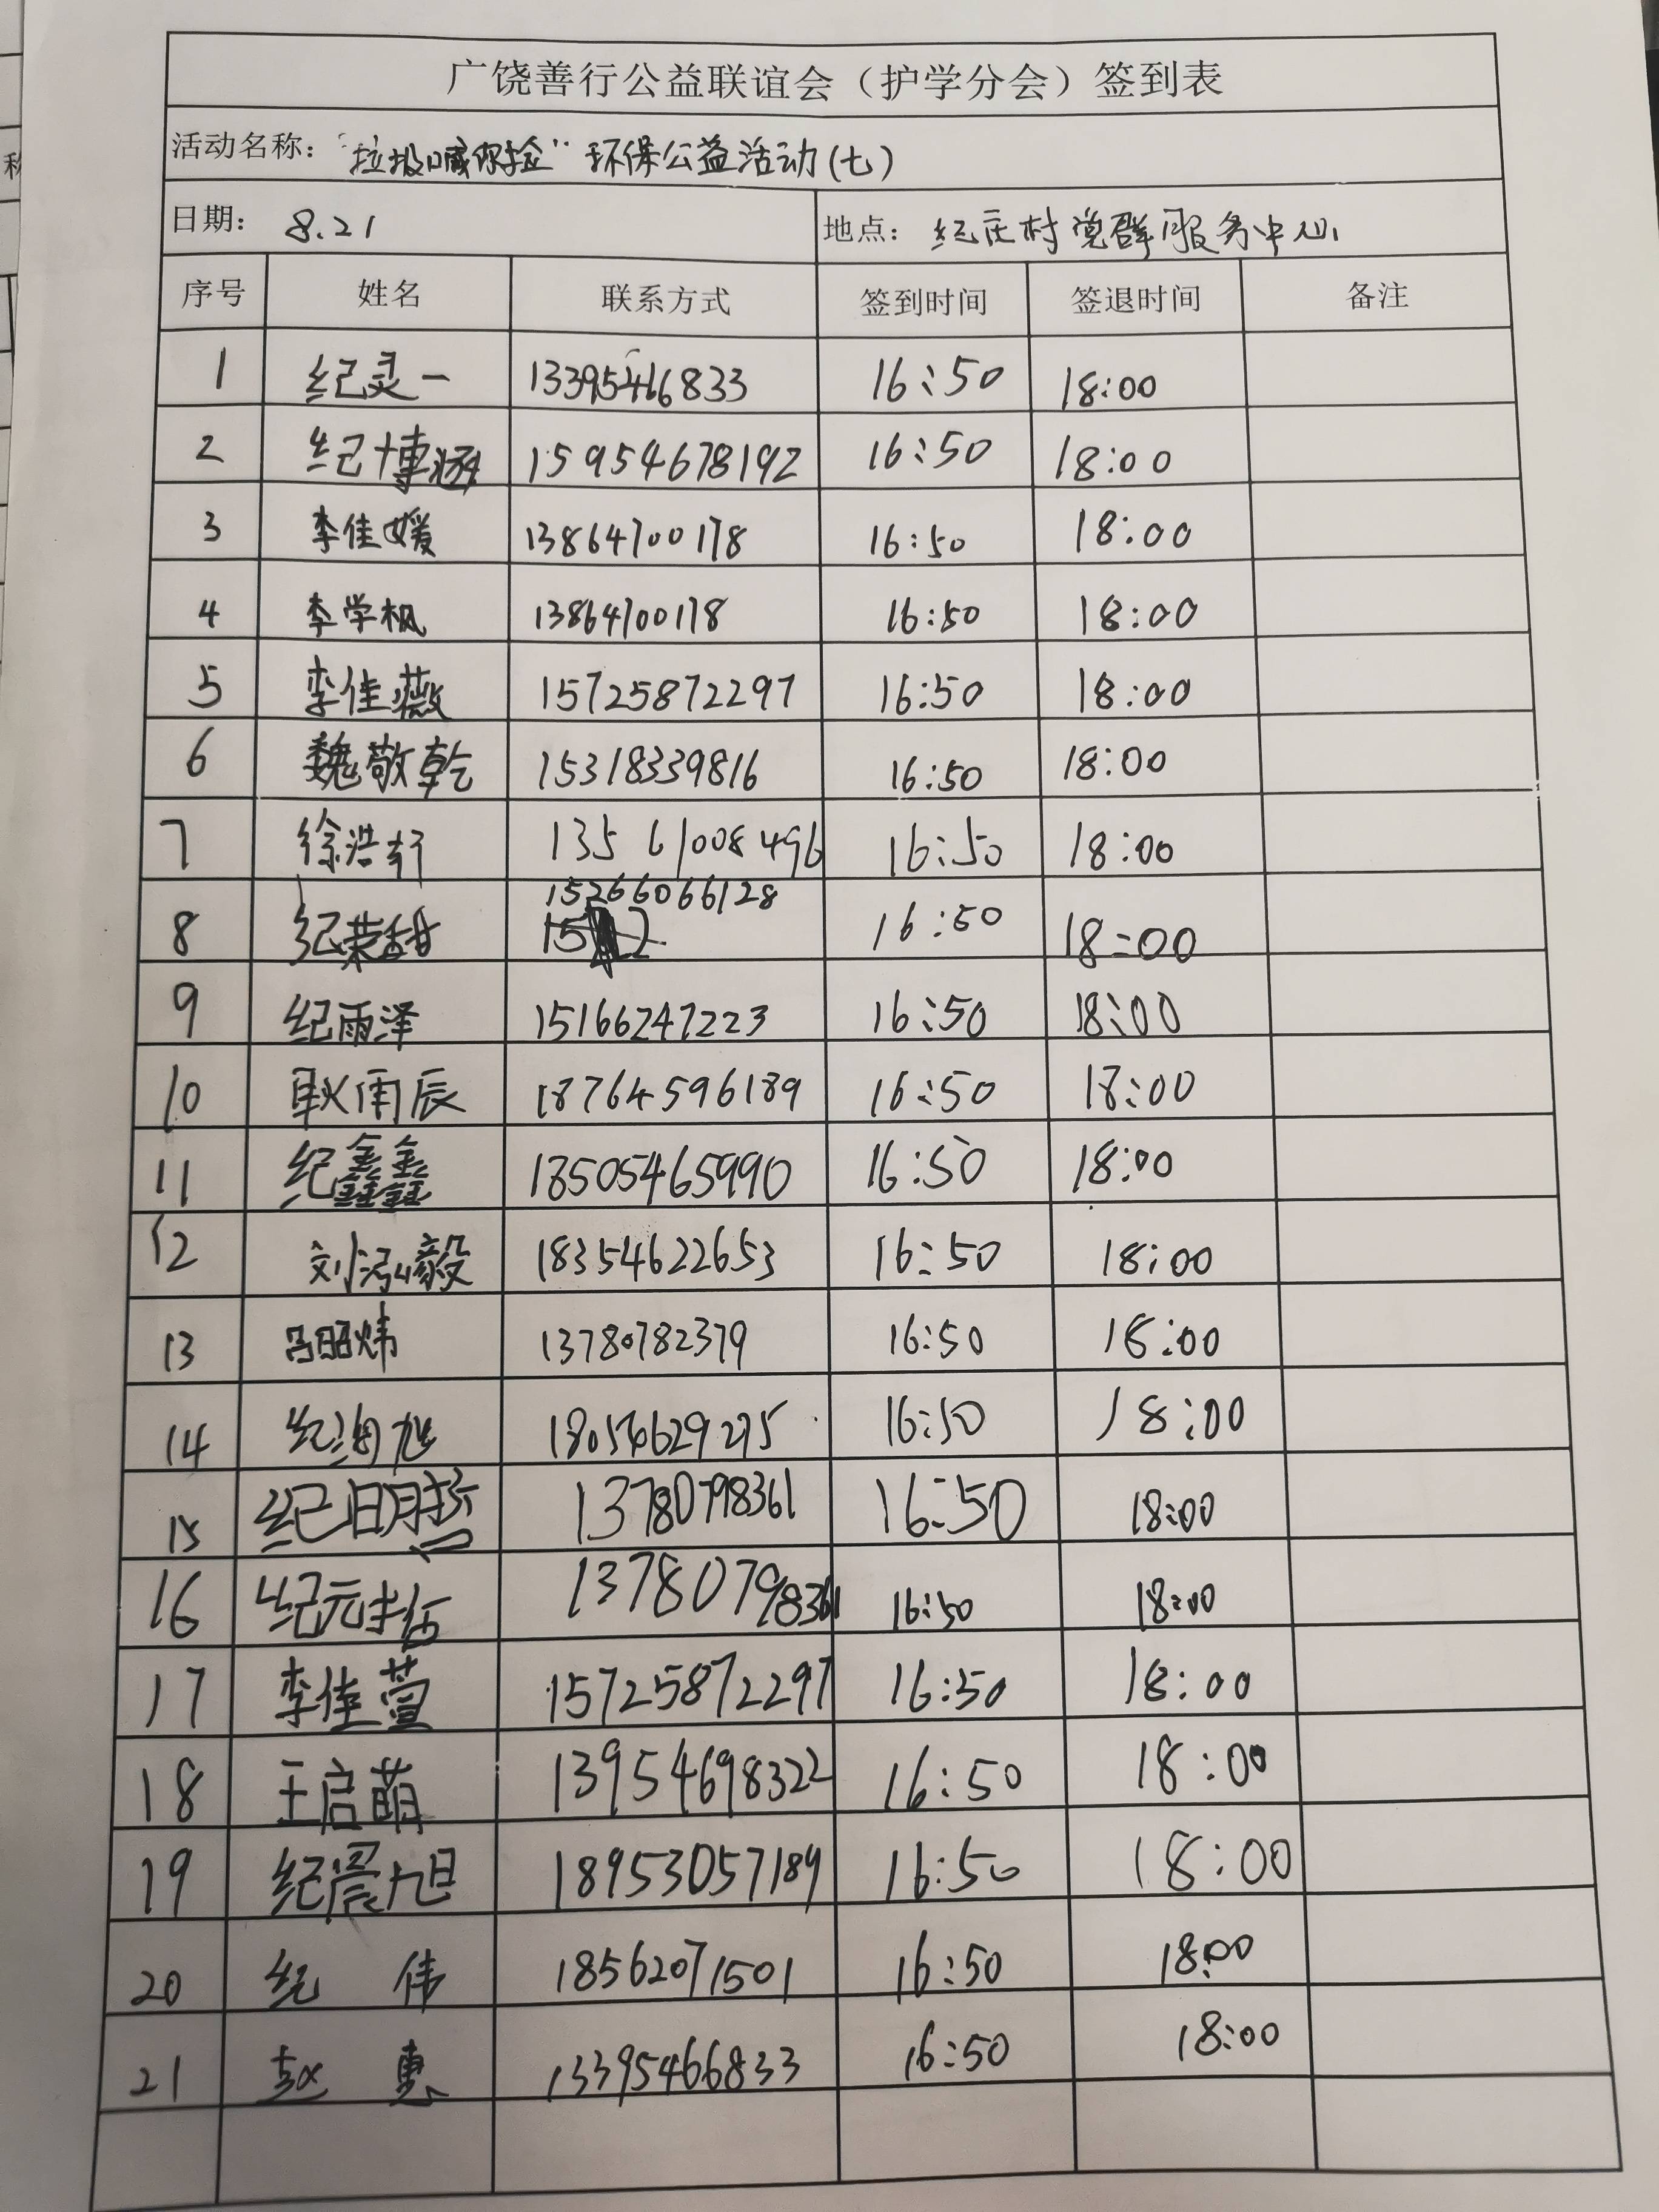 广饶善行公益联谊会（护学分会）签到表
活动名称：“垃圾喊你捡”环保公益活动(七)
日期： 8.21 地点：纪庄村党群服务中心
序号 姓名 联系方式 签到时间 签退时间 备注
1 纪灵一 13395466833 16:50 18:00
2 纪博涵 15954678192 16:50 18:00
3 李佳媛 13864700178 16:50 18:00
4 李学枫 13864700178 16:50 18:00
5 李佳薇 15725872297 16:50 18:00
6 魏敬乾 15318339816 16:50 18:00
7 徐浩轩 13561008496 16:50 18:00
8 纪荣甜 15266066128 16:50 18:00
9 纪雨泽 15166247223 16:50 18:00
10 耿雨辰 18764596189 16:50 18:00
11 纪鑫鑫 18505465990 16:50 18:00
12 刘泓毅 18354622653 16:50 18:00
13 吕昭炜 13780782379 16:50 18:00
14 纪 16:50 18:00
15 纪 13780798361 16:50 18:00
16 纪元 13780798361 16:50 18:00
17 李佳萱 15725872297 16:50 18:00
18 王启萌 13954698322 16:50 18:00
19 纪晨旭 18953057189 16:50 18:00
20 纪伟 18562071501 16:50 18:00
21 赵惠 13395466833 16:50 18:00